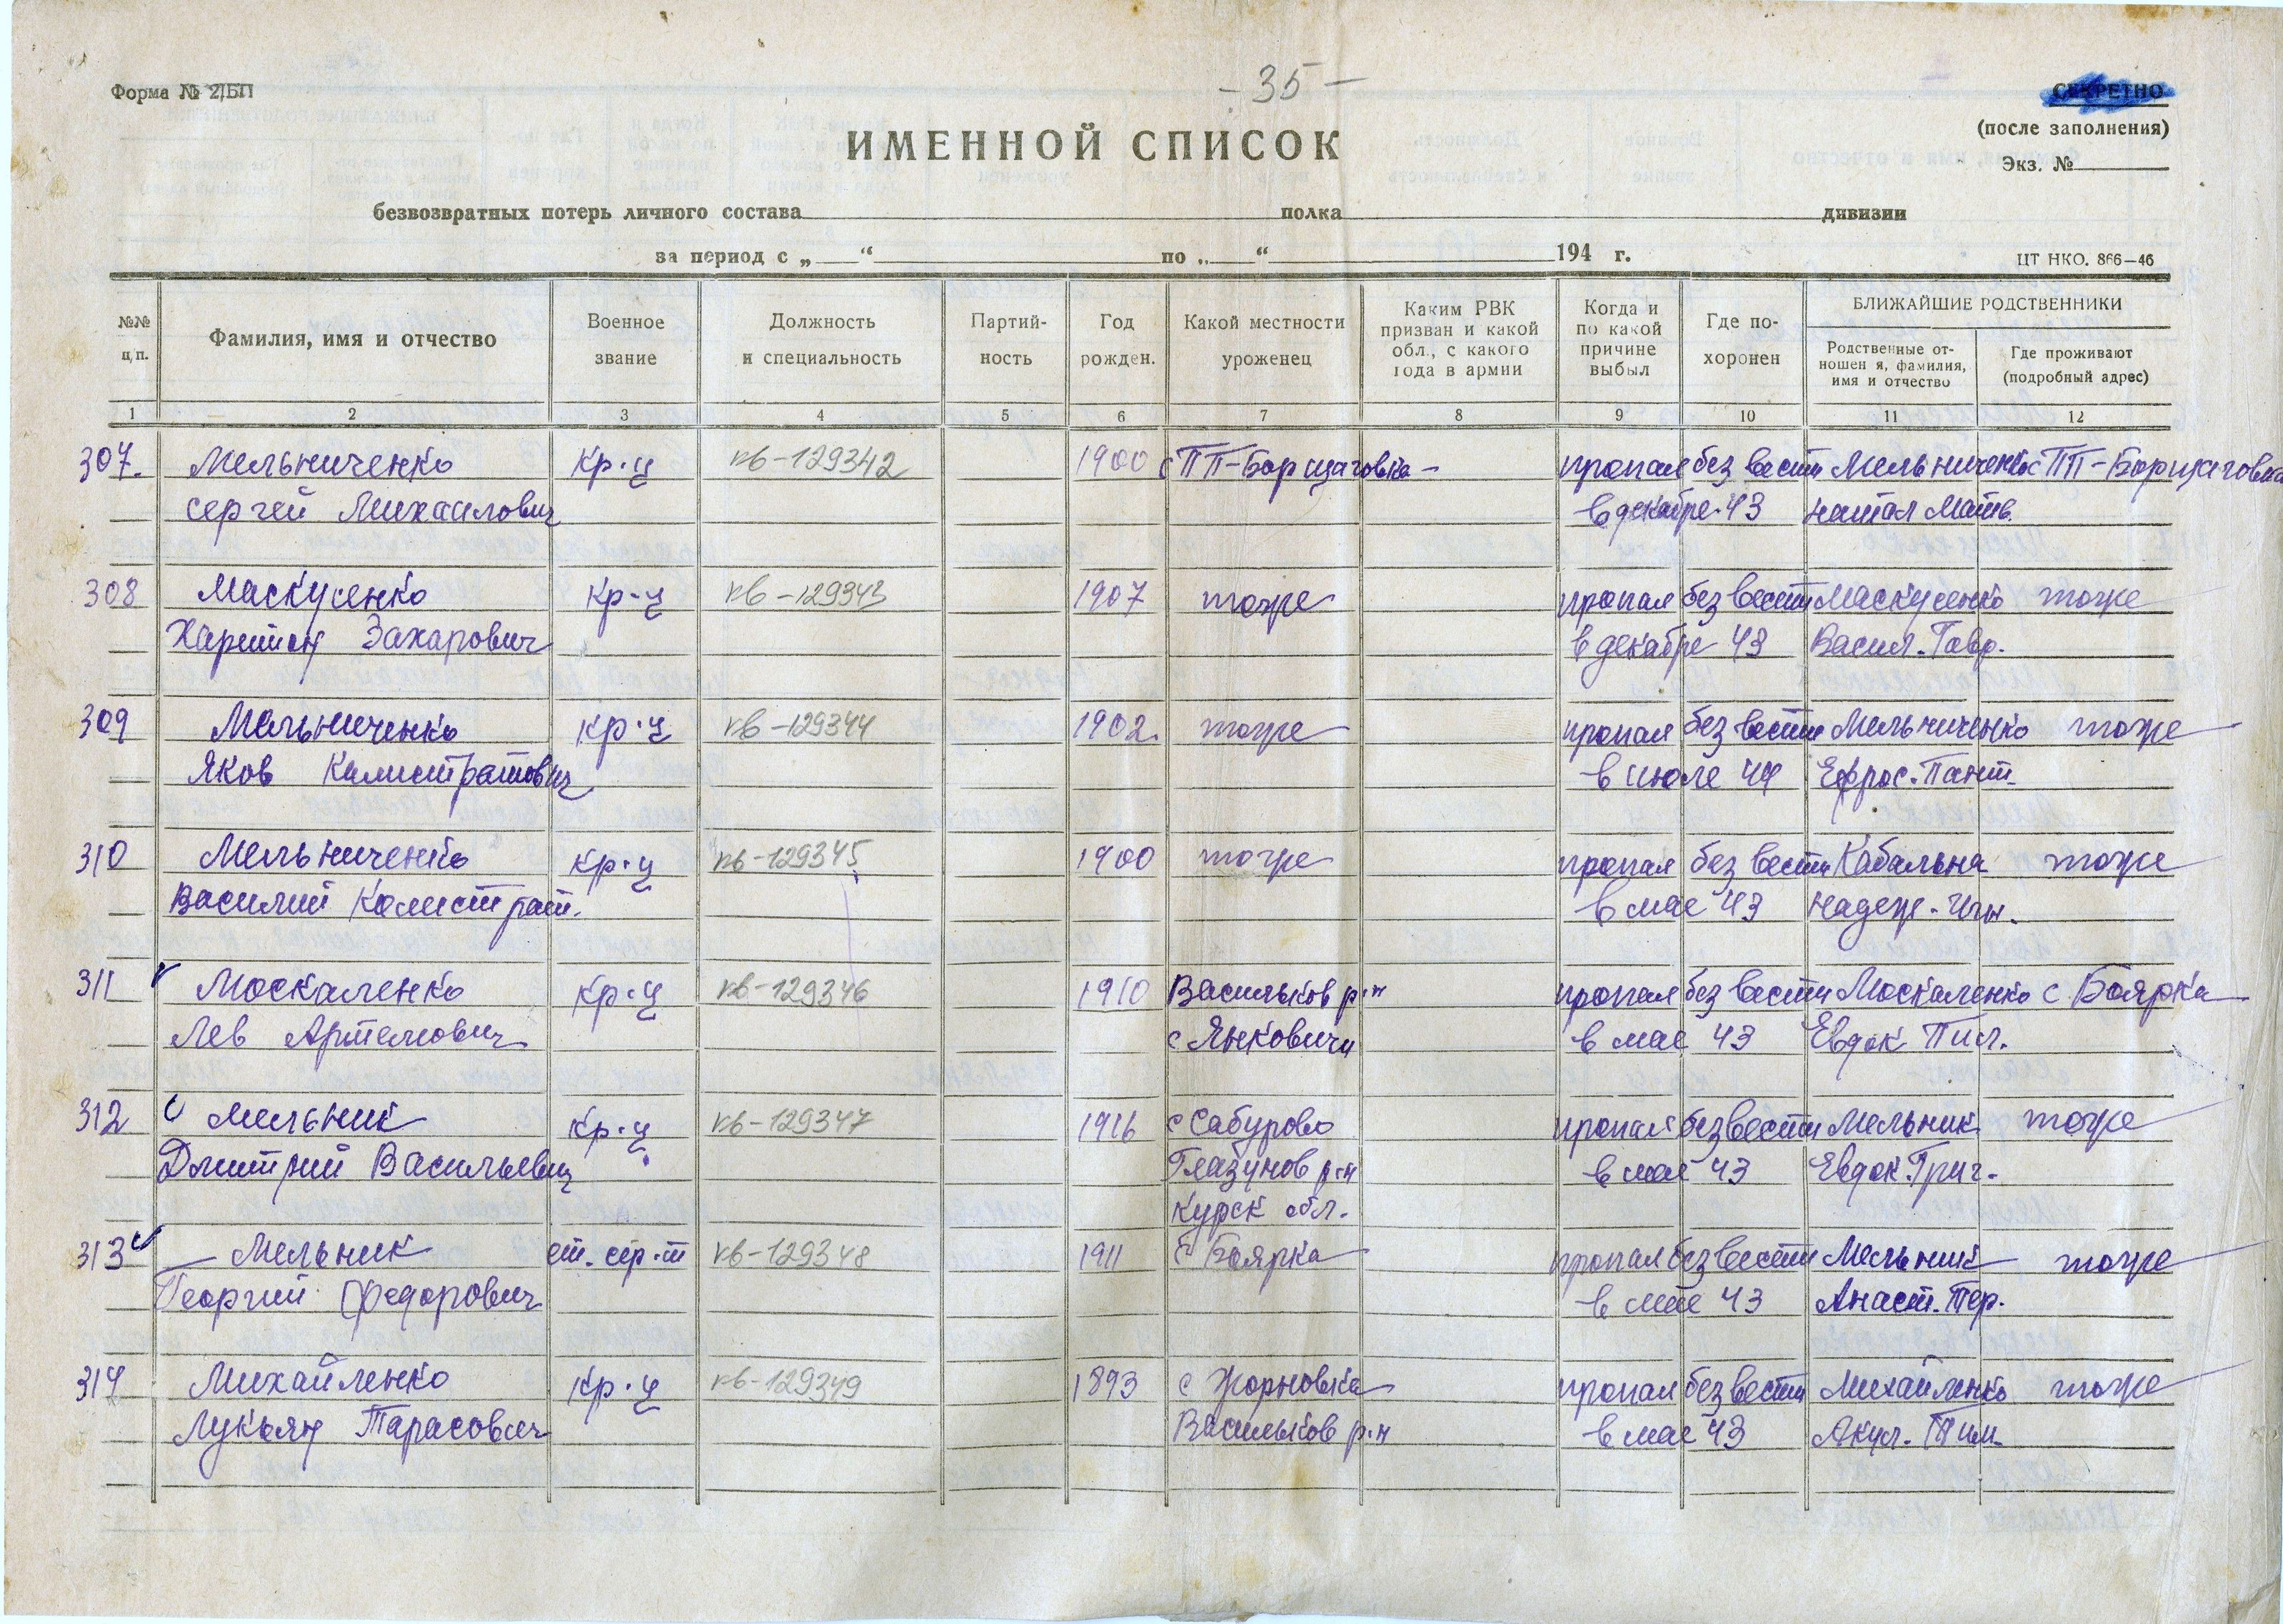 - 35 -
Форма № 2/БП
СЕКРЕТНО
(после заполнения)
Экз. №
ИМЕННОЙ СПИСОК
безвозвратных потерь личного состава полка дивизии
за период с „ “ по „ “ 194 г.
ЦТ НКО. 866—46
№№ п.п. Фамилия, имя и отчество Военное звание Должность и специальность Партий-ность Год рожден. Какой местности уроженец Каким РВК призван и какой обл., с какого года в армии Когда и по какой причине выбыл Где по-хоронен БЛИЖАЙШИЕ РОДСТВЕННИКИ
Родственные от-ношен я, фамилия, имя и отчество Где проживают (подробный адрес)
1 2 3 4 5 6 7 8 9 10 11 12
307. Мельниченко кр-ц кв-129342 1900 с ПП-Борщаговка - пропал без вести Мельниченко с ПП-Борщаговка
Сергей Михаилович в декабре 43 Натал Матв.
308 Маскусенко кр-ц кв-129343 1907 тоже пропал без вести Маскусенко тоже
Харитон Захарович в декабре 43 Васил. Гавр.
309 Мельниченко кр-ц кв-129344 1902. тоже пропал без вести Мельниченко тоже
Яков Калистратович в июле 44 Ефрос. Пант.
310 Мельниченко кр-ц кв-129345 1900 тоже пропал без вести Кабальна тоже
Василий Калистрат. в мае 43 Надеж.
311 Москаленко кр-ц кв-129346 1910 Васильков р-н пропал без вести Москаленко с. Боярка
Лев Артемович с Янковичи в мае 43 Евдок Пил.
312 Мельник кр-ц кв-129347 1916 с Сабурово пропал без вести Мельник тоже
Дмитрий Васильевич Глазунов р-н в мае 43 Евдок. Григ.
Курск обл.
313 Мельник ст. сер-т кв-129348 1911 с Боярка пропал без вести Мельник тоже
Георгий Федорович в мае 43 Анаст. Тер.
314 Михайленко кр-ц кв-129349 1893 с Жорновка пропал без вести Михайленко тоже
Лукьян Тарасович Васильков р-н в мае 43 Акул. Тим.